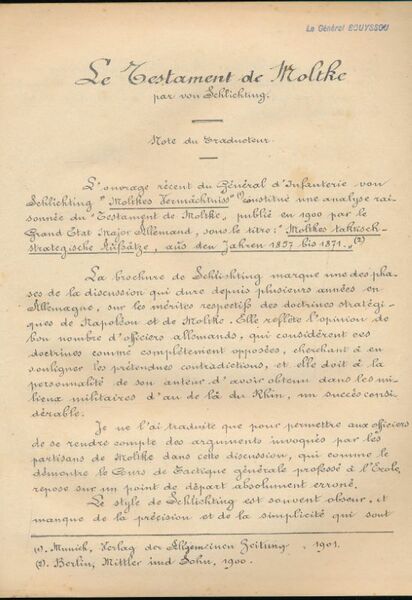 Le Général BOUYSSOU
Le Testament de Moltke
par von Schlichting.
Note du Traducteur.
L'ouvrage récent du Général d'Infanterie von
Schlichting "Moltkes Vermächtniss" (1) constitue une analyse rai-
sonnée du "Testament de Moltke", publié en 1900 par le
Grand Etat Major Allemand, sous le titre: "Moltkes taktisch-
strategische Aufsätze, aus den Jahren 1857 bis 1871." (2)
La brochure de Schlishting marque une des pha-
ses de la discussion qui dure depuis plusieurs années en
Allemagne, sur les mérites respectifs des doctrines stratégi-
ques de Napoléon et de Moltke. Elle reflète l'opinion de
bon nombre d'officiers allemands, qui considèrent ces
doctrines comme complètement opposées, cherchant à en
souligner les prétendues contradictions, et elle doit à la
personnalité de son auteur d'avoir obtenu dans les mi-
lieux militaires d'au de là du Rhin, un succès consi-
dérable.
Je ne l'ai traduite que pour permettre aux officiers
de se rendre compte des arguments invoqués par les
partisans de Moltke dans cette discussion, qui comme le
démontre le Cours de Tactique générale professé à l'Ecole,
repose sur un point de départ absolument erroné.
Le style de Schlishting est souvent obscur, il
manque de la précision et de la simplicité qui sont
(1). Munich, Verlag der Allgemeinen Zeitung, 1901.
(2). Berlin, Mittler und Sohn, 1900.